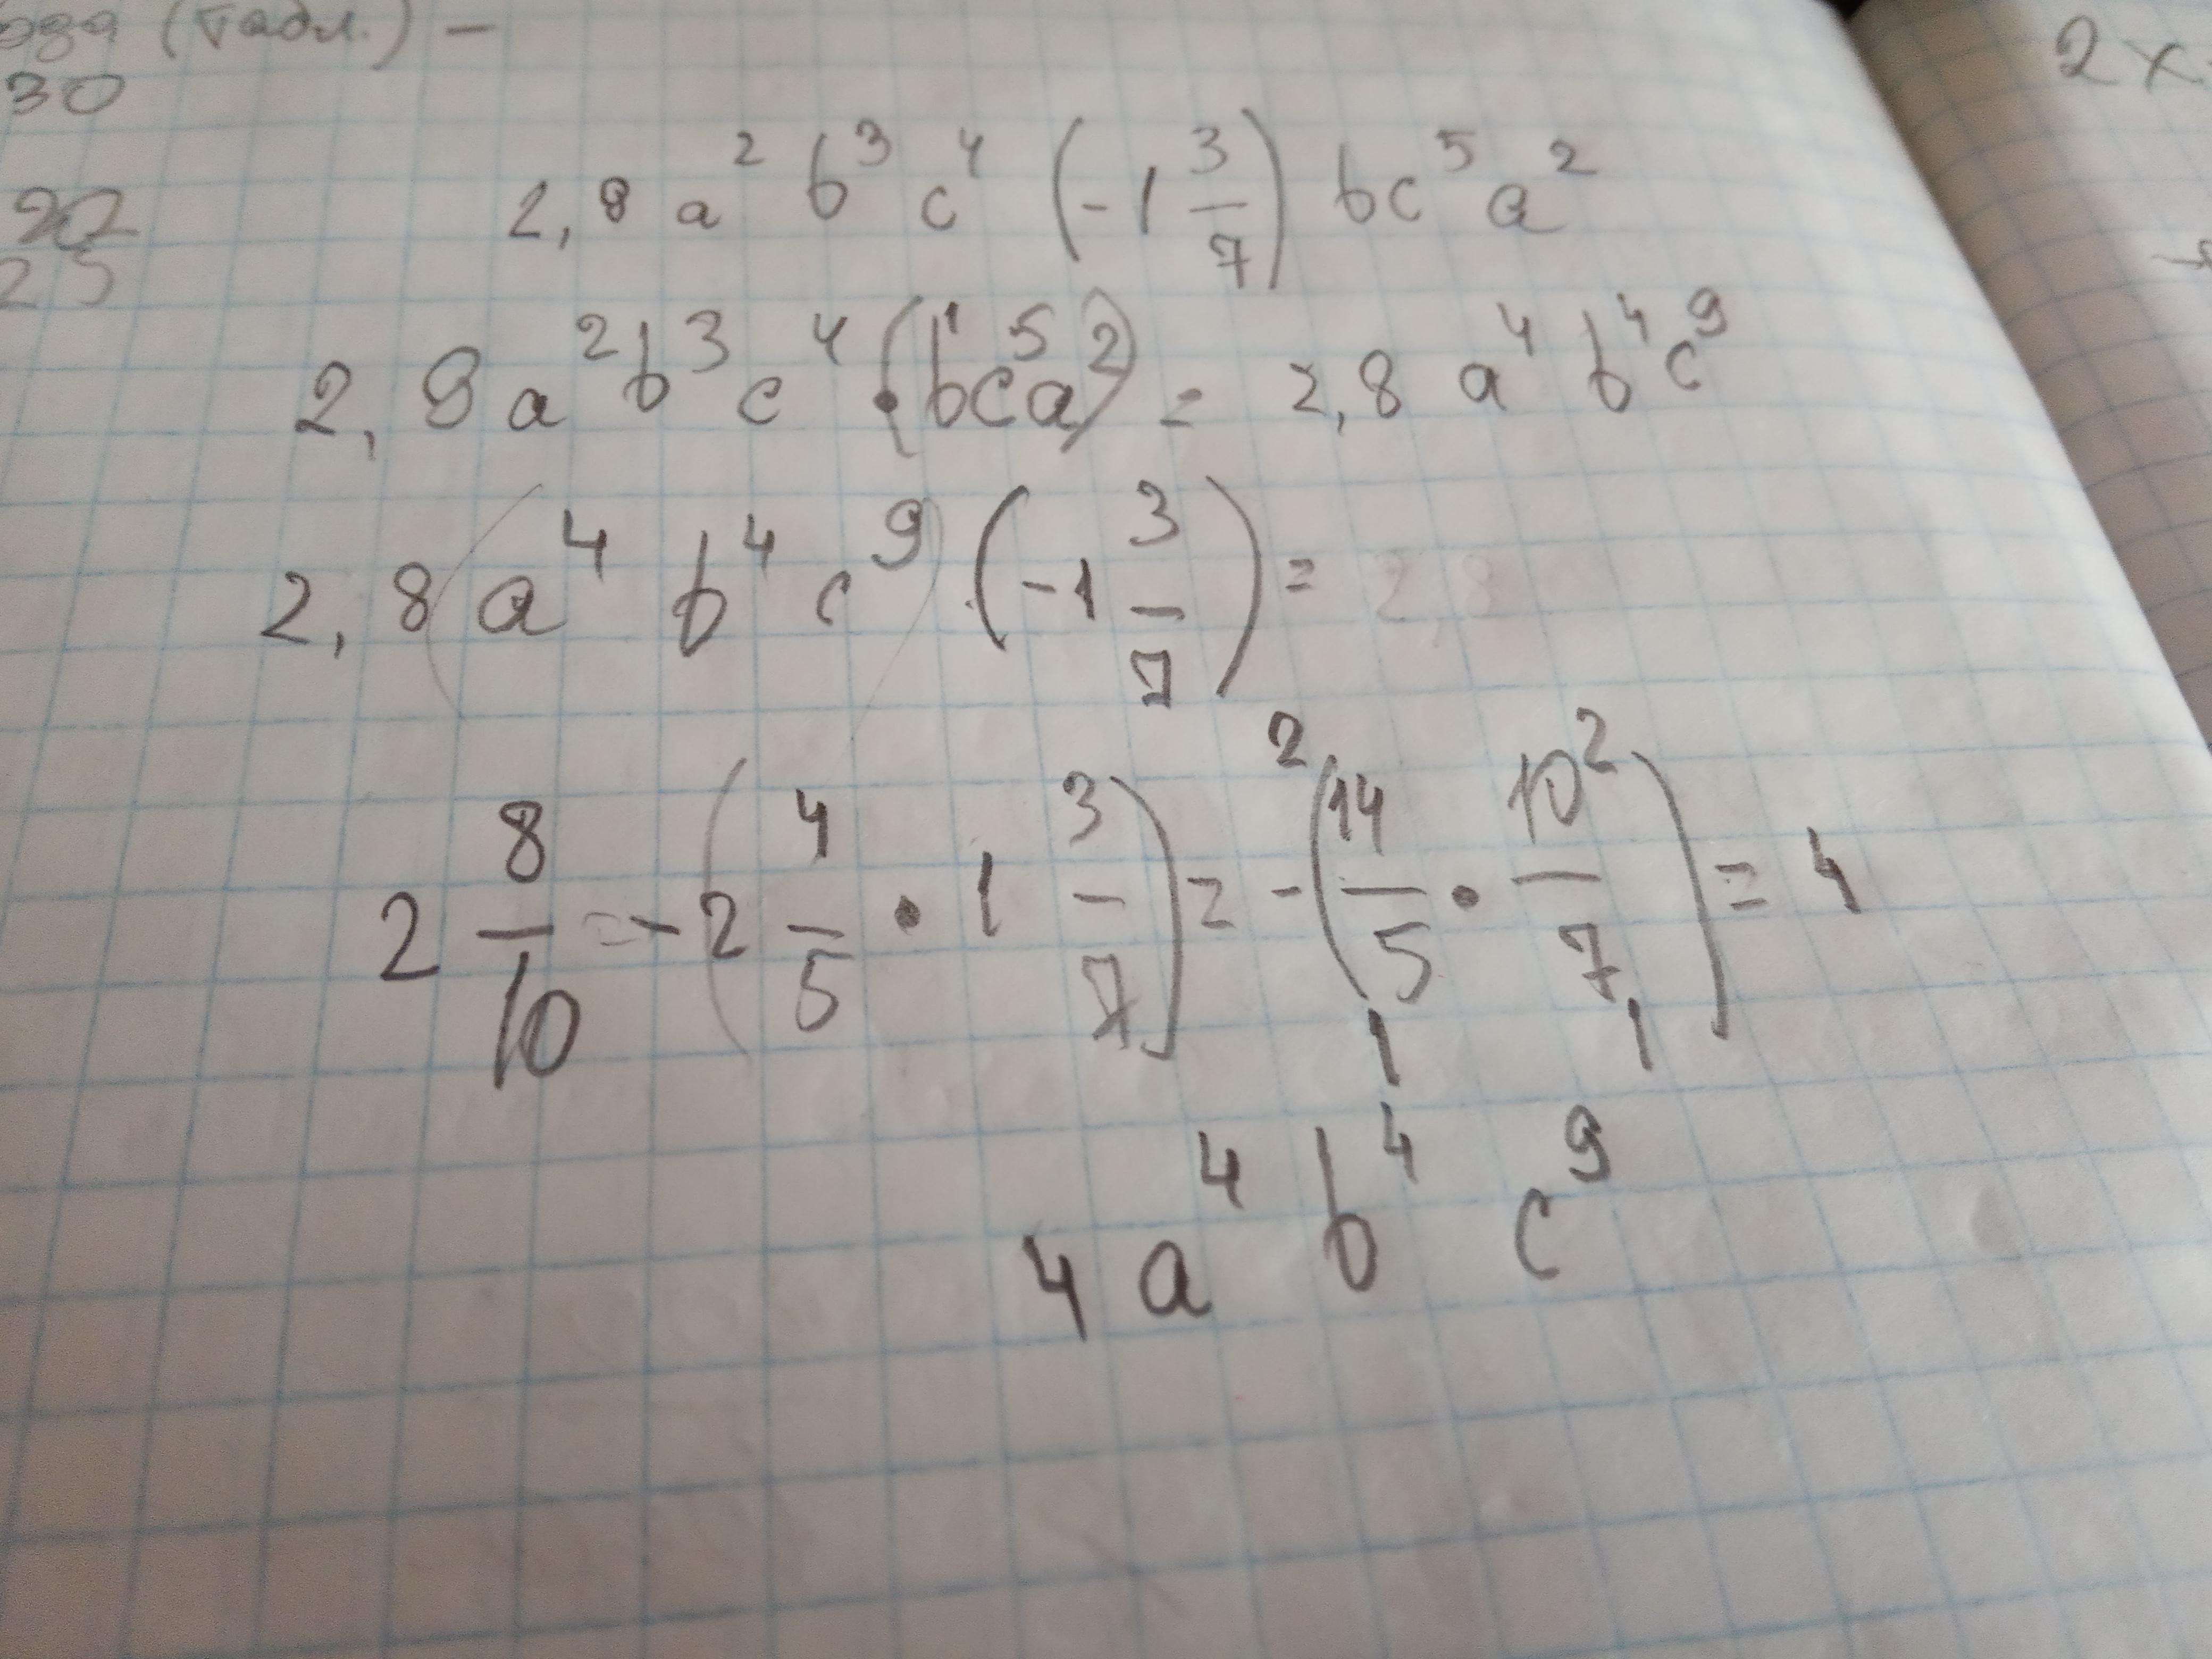 (табл.) –
30
2x
20
25
2,8 a² b³ c⁴ (-1 3/7) bc⁵ a²
2,8 a² b³ c⁴ · (b¹c⁵a²) = 2,8 a⁴ b⁴ c⁹
2,8 (a⁴ b⁴ c⁹) · (-1 3/7) =
2 8/10 = -(2 4/5 · 1 3/7) = -(²14/5₁ · 10²/7₁) = 4
4 a⁴ b⁴ c⁹